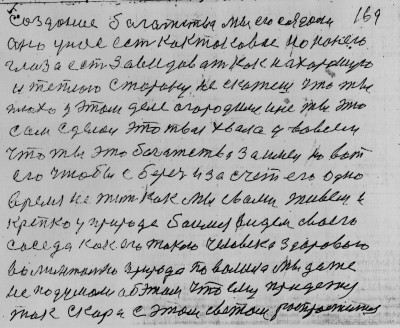 Создание богатства мы его создали 169
оно у нас есть как таковое но на него
глаза есть завидоват как на хорошую
и теплою сторону не скажеш что ты
плохо у этом деле огородился не ты это
сам сделал это твоя хвала у вовсем
что ты это богатство заимел но вот
его чтобы сберечь за счет его одно
время не жит как мы с вами живем и
крепко у природе боимся видем своего
соседа как он такого человека здорового
воспитанного природа половила мы даже
не подумали об этом что ему придется
так скоро с этим светом распроститься